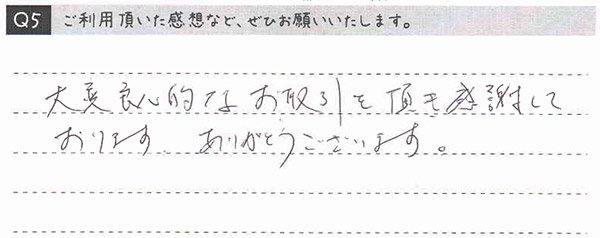 Q5 ご利用頂いた感想など、ぜひお願いいたします。
大変良心的なお取引を頂き感謝して
おります。ありがとうございます。